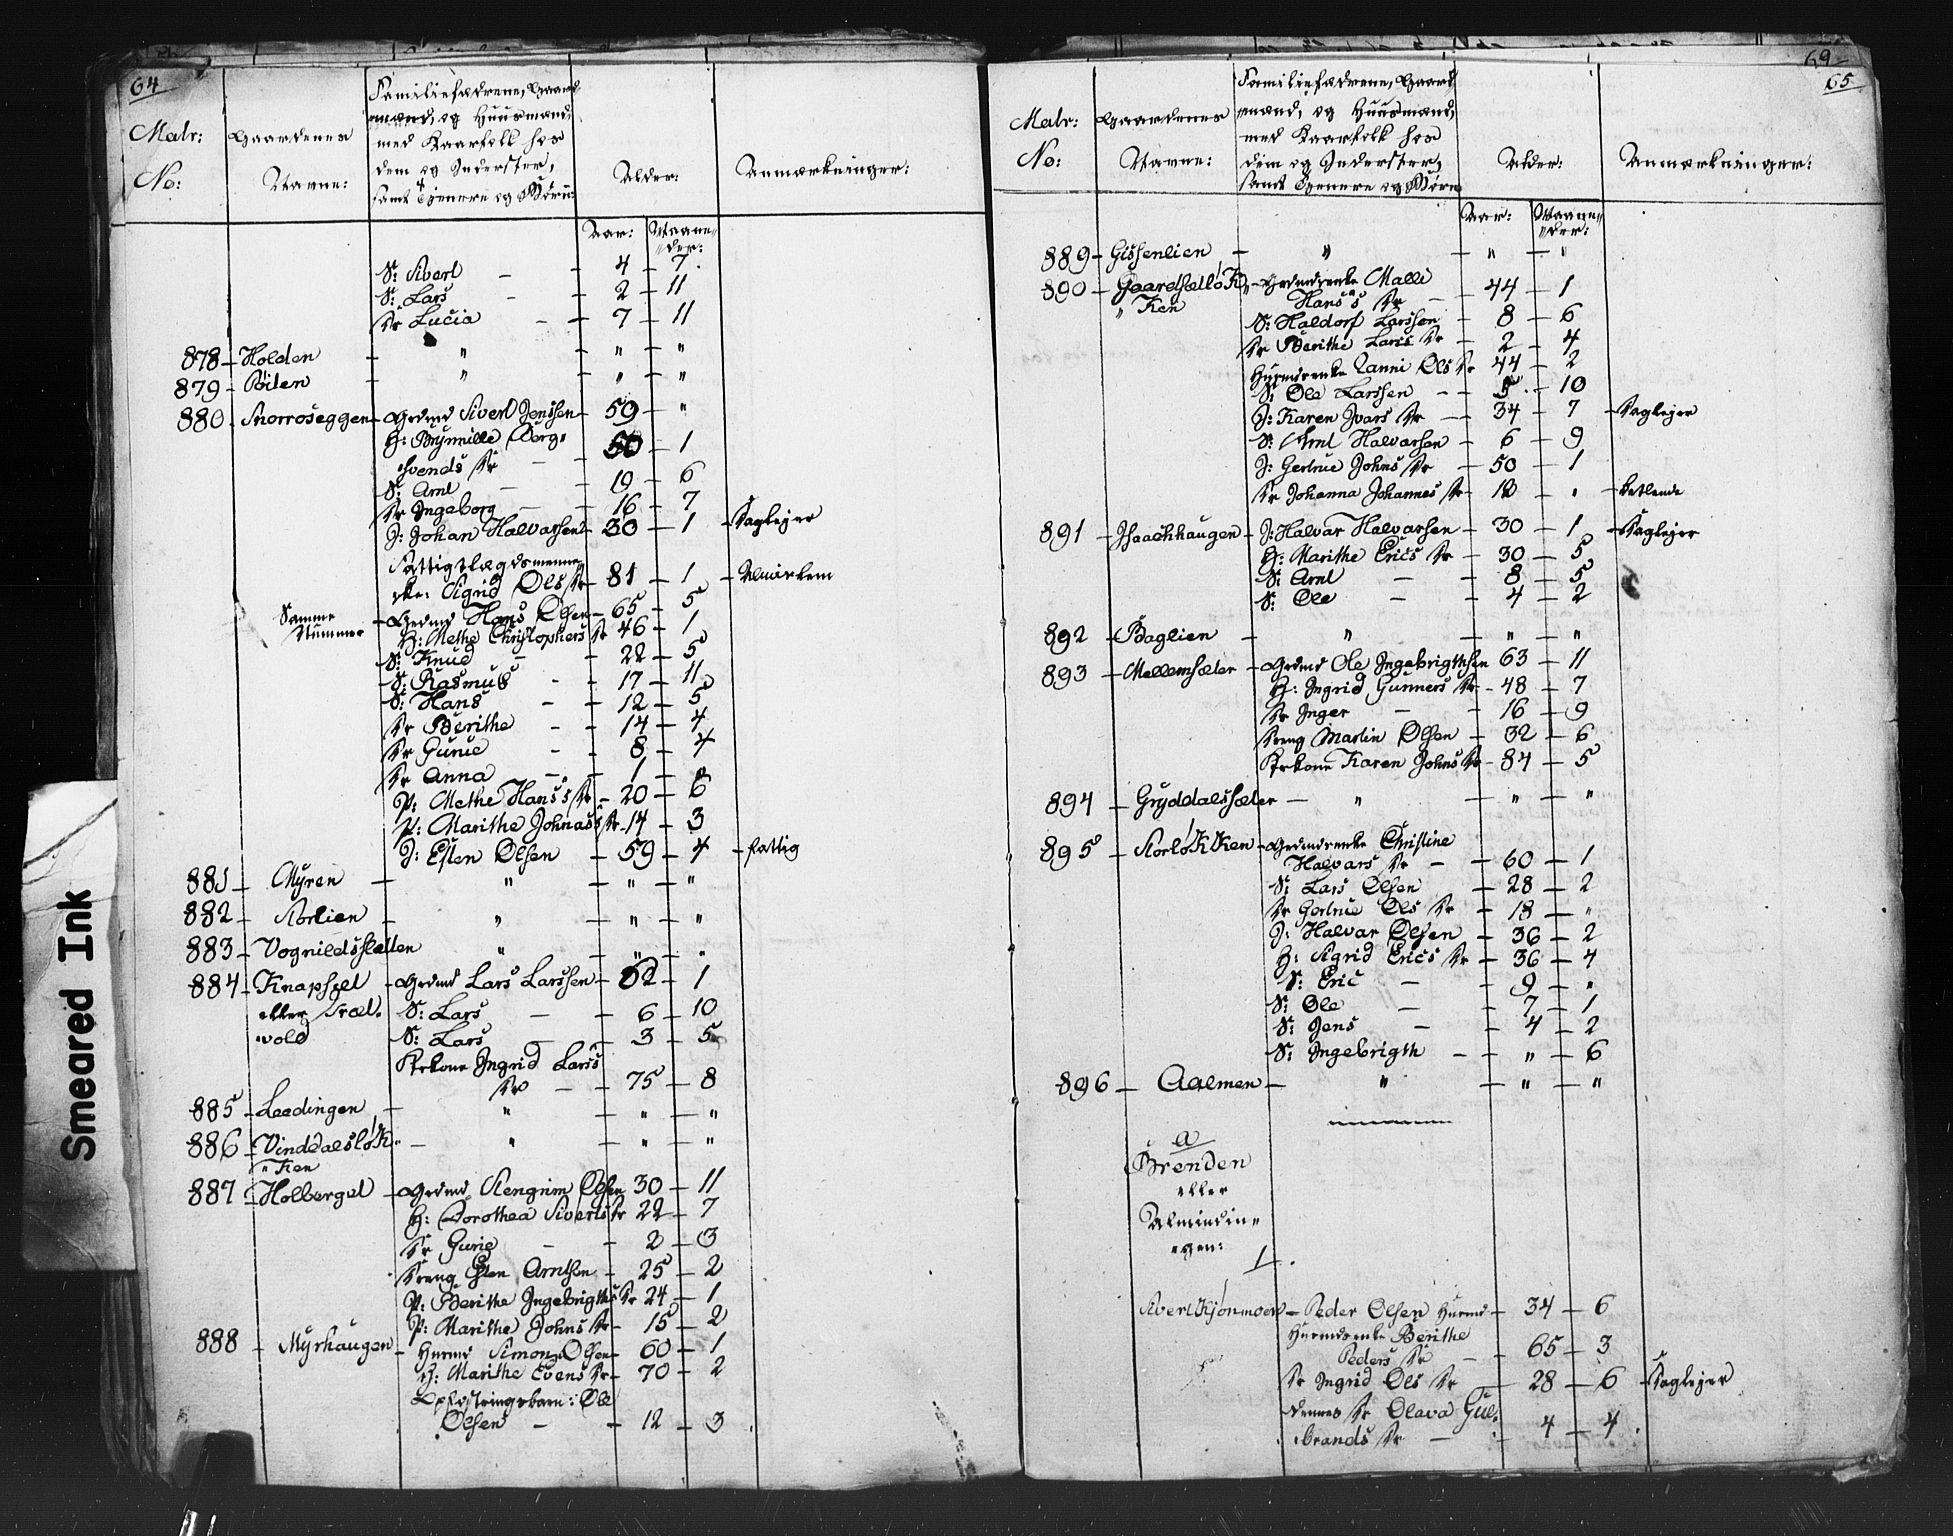 64
Matr: No:
Gaardenes Navne:
Familiefædrene, Gaard-
mænd, og Huusmænd,
med Kaarfolk hos
dem og Inderster,
samt Tjenere og Børn
Alder:
Anmærkninger:
Aar: Maane-
der:
S: Sivert - - 4 - 7.
S: Lars - 2 - 11
Dr Lucia - - 7 - 11
878 - Holden - " - " - "
879 - Röilen - " - " - "
880 - Snorroseggen - Grdmd Sivert Jenssen - 59 - "
H: Brynnille Berg-
svends Dr - 50 - 1
S: Arnt - - 19 - 6
Dr Ingeborg - - 16 - 7
J: Johan Halvorsen - 30 - 1 - Daglejer
Fattiglægdsmenne-
ske: Sigrid Ols Dr - 81 - 1 - Almissem
Samme Nummer - Grdmd Hans Olsen - 65 - 5
H: Methe Christophers Dr 46 - 1
S: Knud - - 22 - 5
S: Rasmus - - 17 - 11
S: Hans - - 12 - 5
Dr Berithe - - 14 - 4
Dr Gurie - - 8 - 4
Dr Anna - - 1 - "
P: Methe Hans's Dr - 20 - 6
P: Marithe Johnas's Dr - 14 - 3
J: Esten Olsen - 59 - 4 - fattig
881 - Myren - " - " - "
882 - Storlien - " - " - "
883 - Vognildsslætten " - " - "
884 - Knaphset - Grdmd Lars Larssen - 62 - 1
eller Træt- S: Lars - - 6 - 10
vold S: Lars - - 3 - 5
Krkone Ingrid Lars's
Dr - - 75 - 8
885 - Leedingen - " - " - "
886 - Vinddalsløk- - " - " - "
" ken
887 - Holberget - Grdmd Stengrim Olsen 30 - 11
H: Dorothea Siverts Dr 22 - 7
Dr Gurie - - 2 - 3
Dreng Esten Arntsen - 25 - 2
P: Berithe Ingebrigths Dr 24 - 1
P: Marithe Johns Dr - 15 - 2
888 - Myrhaugen - Husmd Simon Olsen - 60 - 1
H: Marithe Evens Dr - 70 - 2
Opfostringsbarn: Ole
Olsen - - 12 - 3
69
65
Matr: No:
Gaardenes Navne:
Familiefædrene, Gaard-
mænd, og Huusmænd,
med Kaarfolk hos
dem og Inderster,
samt Tjenere og Børn
Alder:
Anmærkninger:
Aar: Maane-
der:
889 - Gissenlien - " - " - "
890 - Gaardsætløk- - Grdmdenke Malli
" ken Hans's Dr - - 44 - 1
S: Haldorf Larssen - 8 - 6
Dr Berithe Lars's Dr - 2 - 4
Husmdenke Ols Dr 44 - 2
S: Ole Larssen - - 5 - 10
J: Karen Ivars Dr - 34 - 7 - Daglejer
S: Arnt Halvorsen - 6 - 9
J: Gertrue Johns Dr - 50 - 1
Dr Johanna Johannes Dr - 12 - " - betlende
891 - Isaachhaugen - J: Halvar Halvorsen - 30 - 1 - Daglejer
H: Marithe Erics Dr - 30 - 5
S: Arnt - - 8 - 5
S: Ole - - 4 - 2
892 - Baglien - " - " - "
893 - Mellemsæter - Grdmd Ole Ingebrigthsen 63 - 11
H: Ingrid Gunners Dr - 48 - 7
Dr Inger - - 16 - 9
Dreng Martin Olsen - 32 - 6
Krkone Karen Johns Dr - 84 - 5
894 - Gryddalssæter - " - " - "
895 - Storløkken - Grdmdenke Christine
Halvars Dr - - 60 - 1
S: Lars Olsen - 28 - 2
Dr Gertrue Ols Dr - 18 - "
J: Halvar Olsen - 36 - 2
H: Sigrid Erics Dr - 36 - 4
S: Eric - - 9 - "
S: Ole - - 7 - 1
S: Jens - - 4 - 2
S: Ingebrigth - - " - 6
896 - Aalmen - " - " - "
a
Brenden
eller
Almindin-
gen:
1.
Sivertkjönmoen - Peder Olsen Husmd - 34 - 6
Husmdenke Berithe
Peders Dr - 65 - 3
Dr Ingrid Ols Dr - 28 - 6 - Daglejer
dennes Dr Olava Gul-
brands Dr - - 4 - 4
Smeared Ink